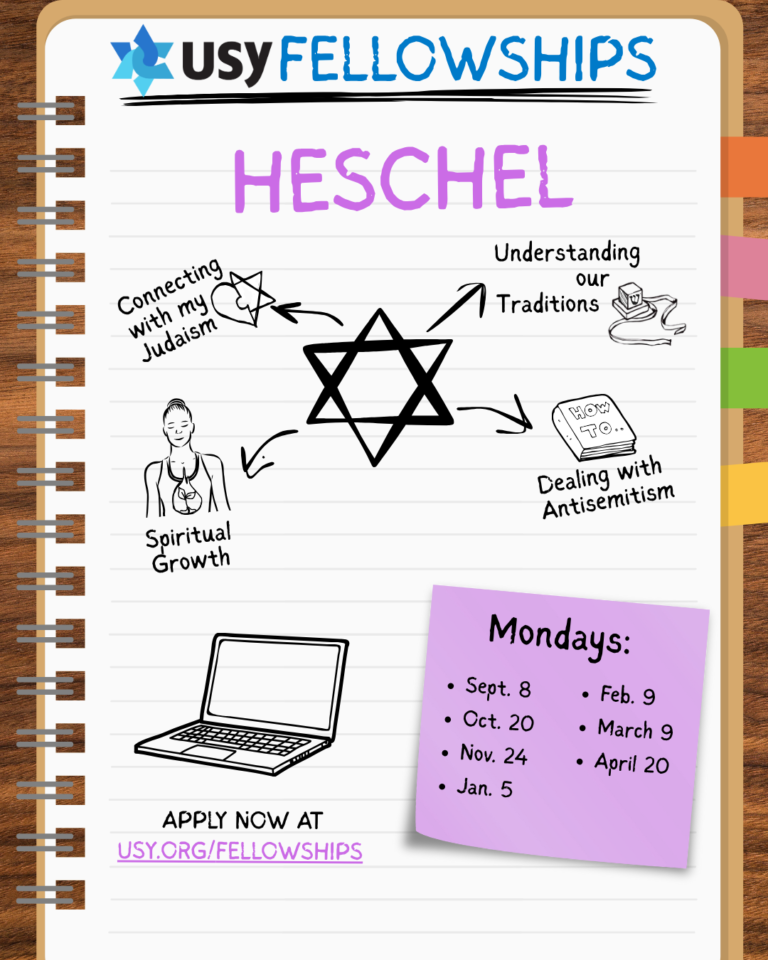 USY FELLOWSHIPS
HESCHEL
Connecting
with my
Judaism
Understanding
our
Traditions
HOW
TO..
Dealing with
Antisemitism
Spiritual
Growth
Mondays:
• Sept. 8
• Oct. 20
• Nov. 24
• Jan. 5
• Feb. 9
• March 9
• April 20
APPLY NOW AT
USY.ORG/FELLOWSHIPS